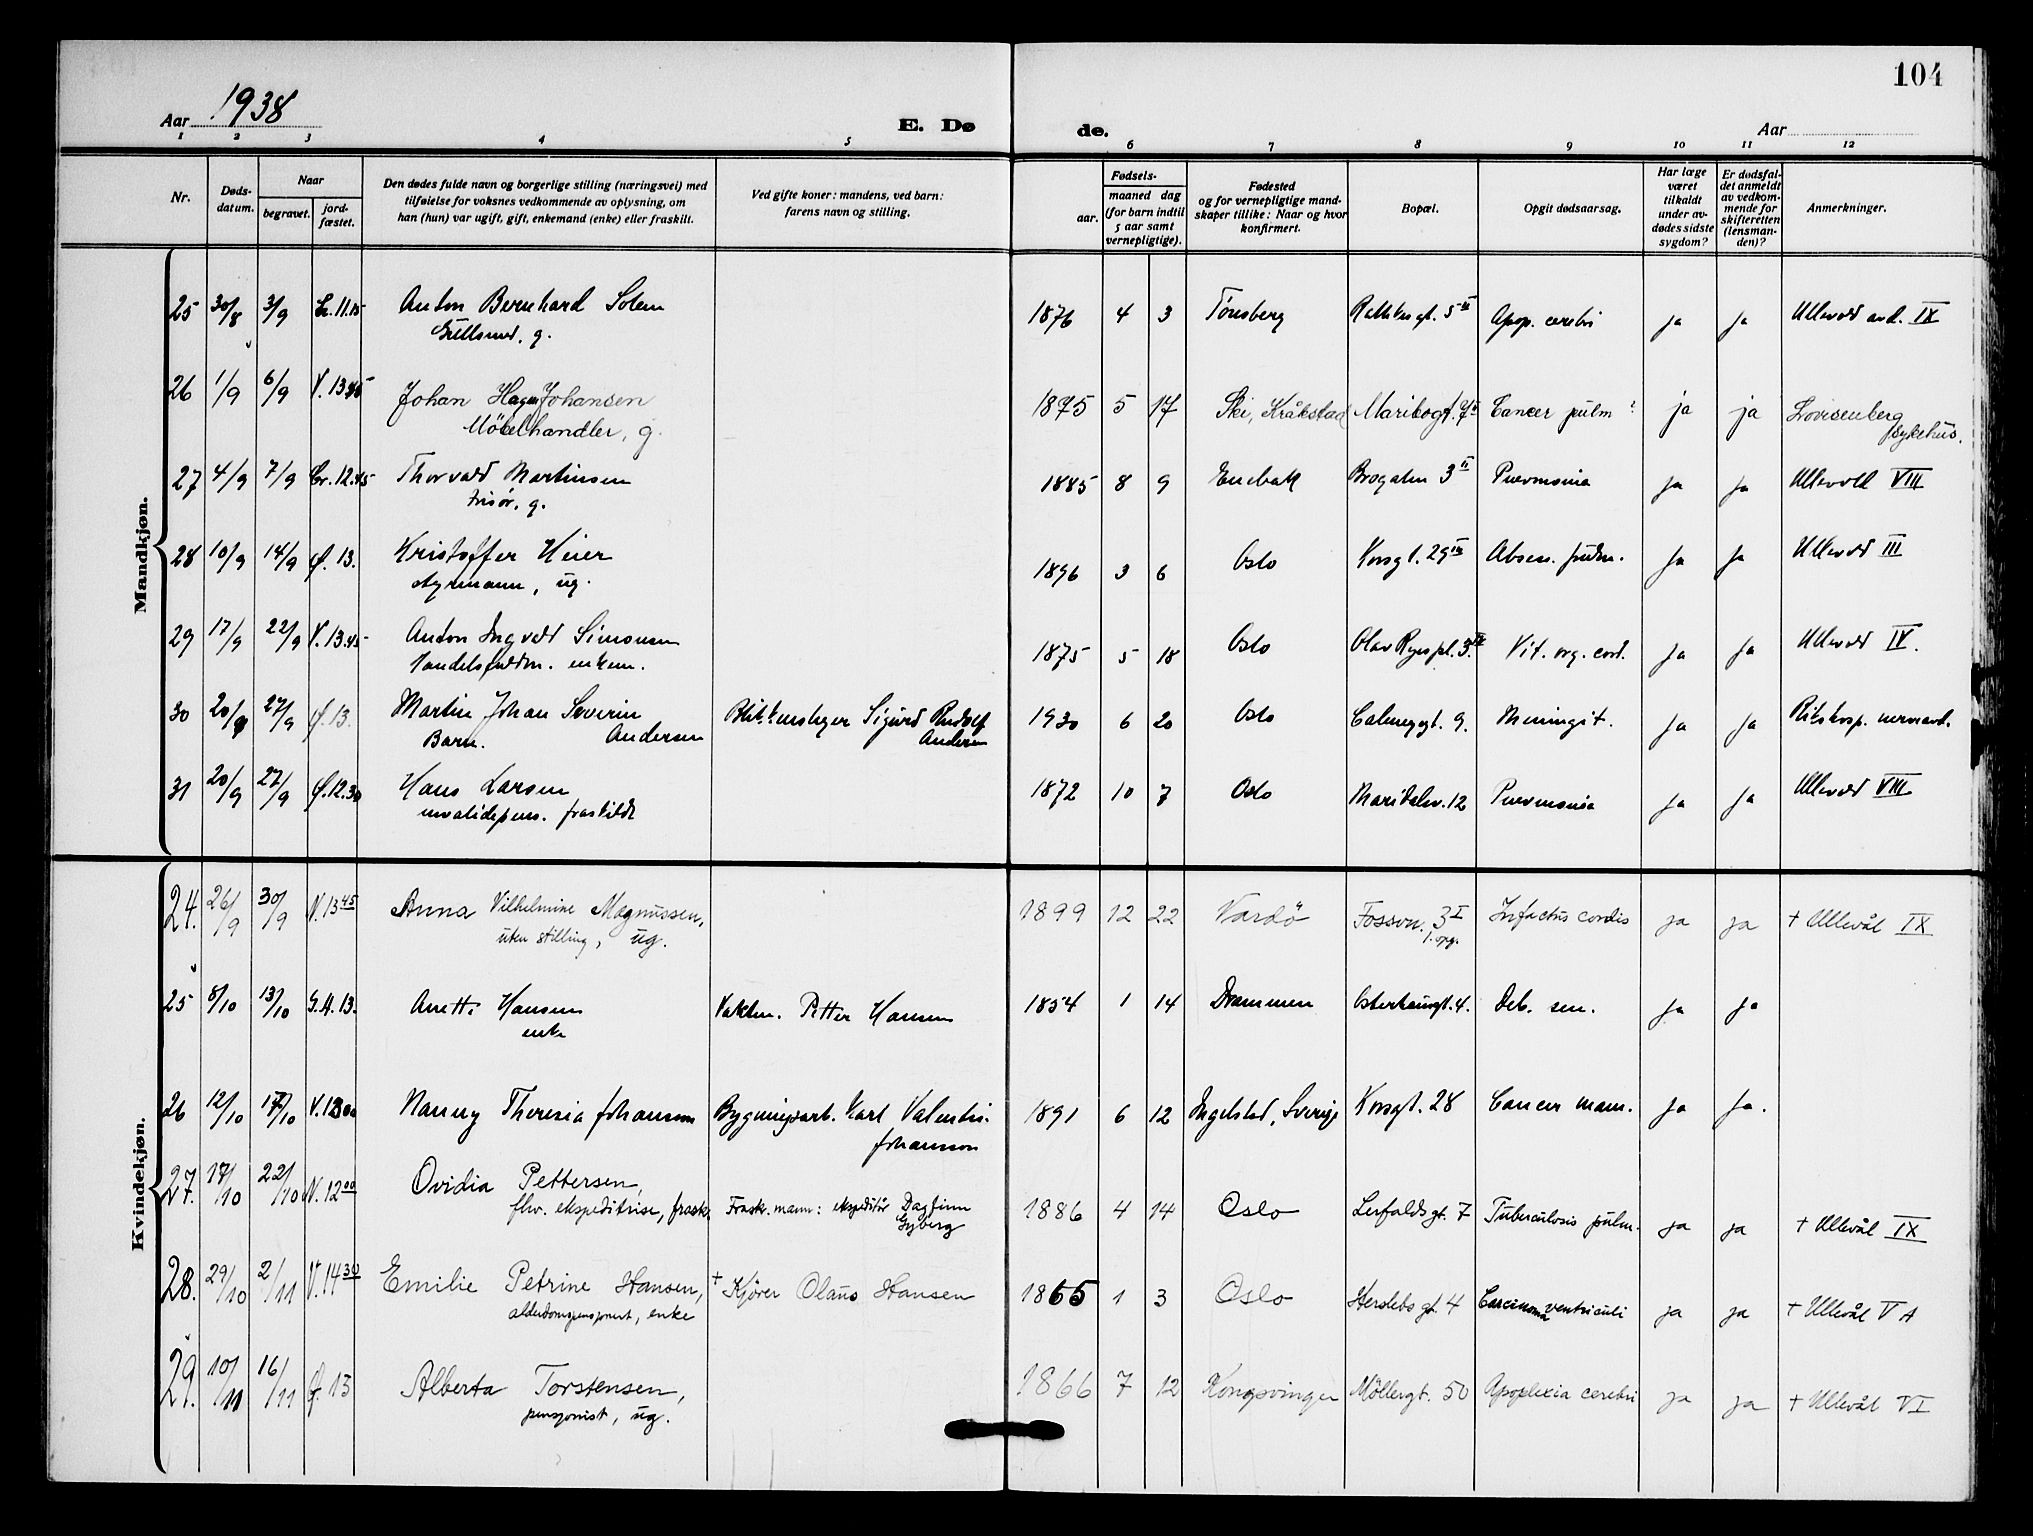 104
Aar 1938
E. Dø
de.
Aar
1 2 3 4 5 6 7 8 9 10 11 12
Nr.
Døds-
datum.
Naar
begravet.
jord-
fæstet.
Den dødes fulde navn og borgerlige stilling (næringsvei) med
tilføielse for voksnes vedkommende av oplysning, om
han (hun) var ugift, gift, enkemand (enke) eller fraskilt.
Ved gifte koner: mandens, ved barn:
farens navn og stilling.
Fødsels-
aar.
maaned dag
(for barn indtil
5 aar samt
vernepligtige).
Fødested
og for vernepligtige mand-
skaper tillike: Naar og hvor
konfirmert.
Bopæl.
Opgit dødsaarsag.
Har læge
været
tilkaldt
under av-
dødes sidste
sygdom?
Er dødsfal-
det anmeldt
av vedkom-
mende for
skifteretten
(lensman-
den)?
Anmerkninger.
Mandkjøn.
25 30/8 3/9 Cr. 11.15 Anton Bernhard Solem 1876 4 3 Tønsberg Rathkes gt. 5 III Apop. cerebri ja ja Ullevold avd. IX
Gullsmed, g.
26 1/9 6/9 V. 13.45 Johan Hagen Johansen 1875 5 17 Ski, Kråkstad Maribogt. Cancer pulm ? ja ja Lovisenberg
Möbelhandler, g. sykehus.
27 4/9 7/9 Cr. 12.45 Thorvald Martinsen 1885 8 9 Enebak Brogaten 3 II Pnevmonia ja ja Ullevold VIII
frisör, g.
28 10/9 14/9 Ø. 13. Kristoffer Heier 1896 3 6 Oslo Korsgt. 29 III Absess. pulm. ja ja Ullevold III
styrmann, ug.
29 17/9 22/9 V. 13.45 Anton Ingvald Simonsen 1875 5 18 Oslo Olav Ryes pl. 3. IV Vit. org. cord. ja ja Ullevold IV.
Handelsfuldm. enkem.
30 20/9 27/9 Ø. 13. Martin Johan Severin Blikkenslager Sigurd Rudolf 1930 6 20 Oslo Calmeygt. 9. Meningit. ja ja Rikshosp. nerveavd.
Barn. Andersen Andersen
31 20/9 27/9 Ø. 12.30 Hans Larsen 1872 10 7 Oslo Maridalsv. 12 Pnevmonia ja ja Ullevold VIII
invalidepens. fraskildt
Kvindekjøn.
24. 26/9 30/9 V. 13 45 Anna Vilhelmine Magnussen, 1899 12 22 Vardö Fossvn. 3 I Infactus cordis ja ja + Ullevål IX
uten stilling, ug. 1. opg.
25 8/10 13/10 G.A. 13. Anette Hansen Vaktm. Petter Hansen 1854 1 14 Drammen Osterhausgt. 4. Deb. sen. ja ja
enke
26 12/10 17/10 V. 13 00 Nanny Theresia Johansson Bygningsarb. Karl Valentin 1891 6 12 Ingelstad, Sverige Korsgt. 28 Cancer mam. ja ja.
Johansson
27. 17/10 22/10 N. 12 00 Ovidia Pettersen, 1886 4 14 Oslo Lerfaldsgt. 7 Tuberculosis pulm. ja ja + Ullevål IX
fhv. ekspeditrise, frask. Frask. mann: ekspeditör Dagfinn
Gyberg
28. 29/10 2/11 V. 14 30 Emilie Petrine Hansen, + Kjörer Olaus Hansen 1865 1 3 Oslo Herslebs gt. 4 Carcinoma ventriculi ja ja + Ullevål V A
alderdomspensjonist, enke
29. 10/11 16/11 Ø. 13 Alberta Torstensen, 1866 7 12 Kongsvinger Möllergt. 50 Apoplexia cerebri ja ja + Ullevål VI
pensjonist, ug.